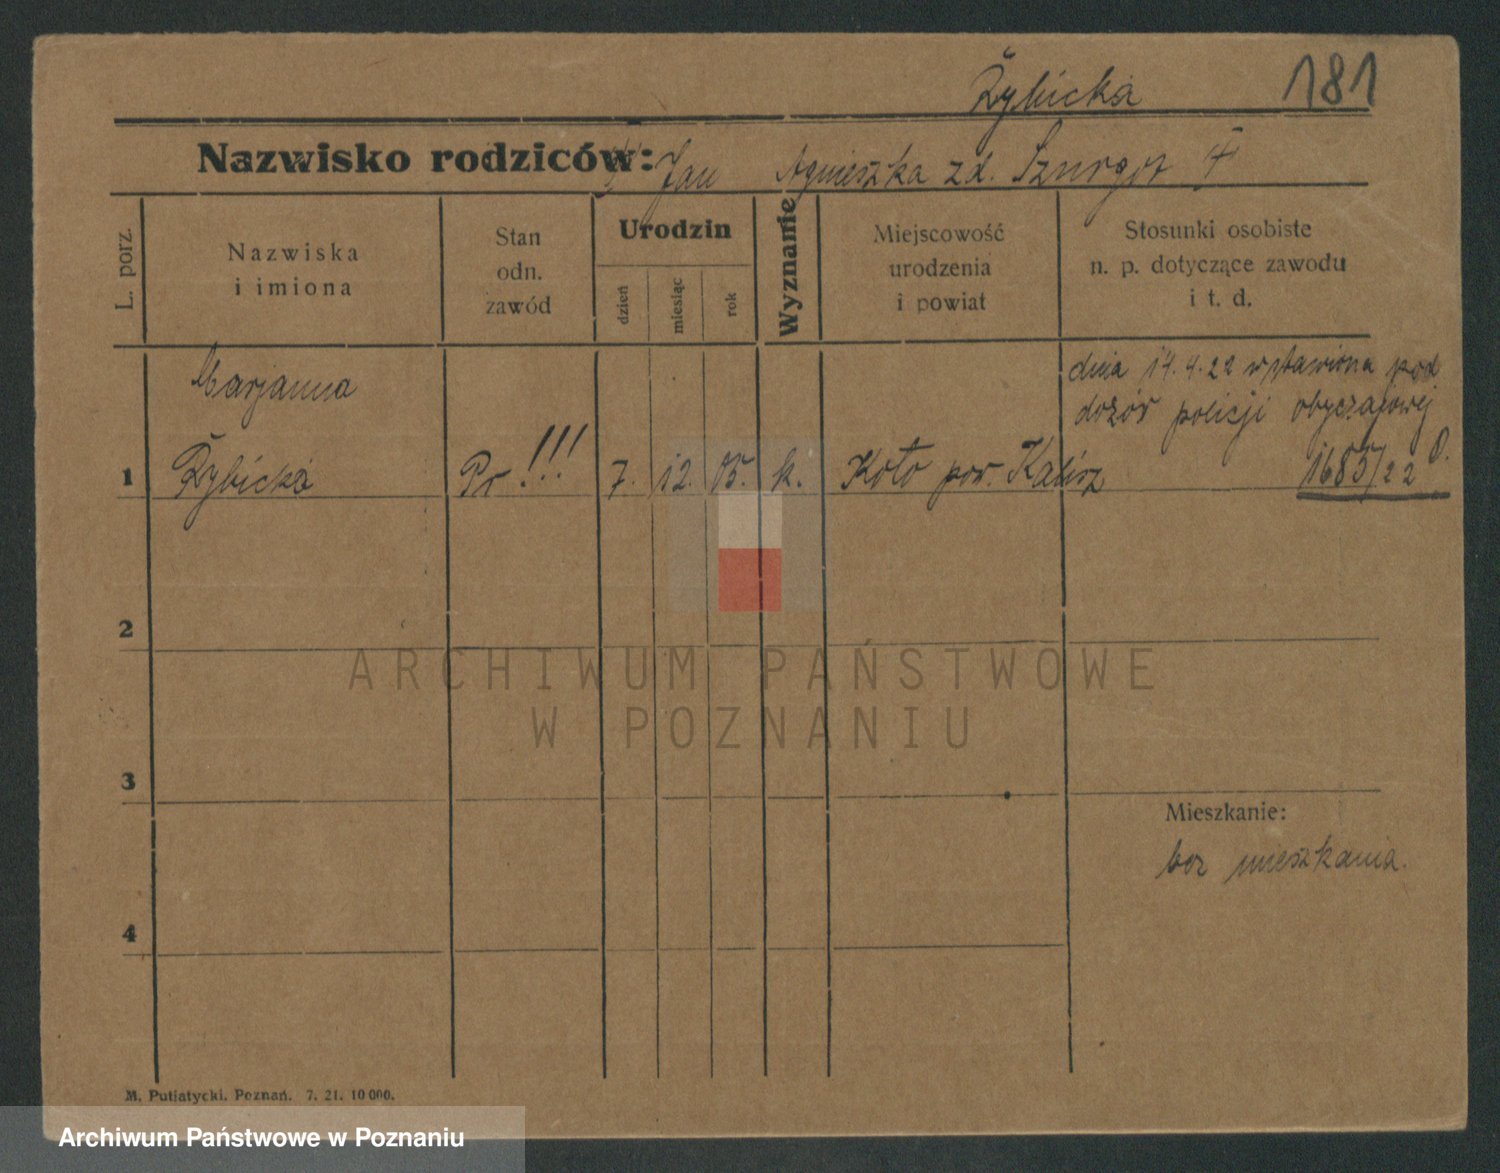 Żybicka 181
Nazwisko rodziców: Jan Agnieszka zd. Szurgot
L. porz.
Nazwiska
i imiona
Stan
odn.
zawód
Urodzin
dzień
miesiąc
rok
Wyznanie
Miejscowość
urodzenia
i powiat
Stosunki osobiste
n. p. dotyczące zawodu
i t. d.
Marjanna
dnia 14.4.22 wstawiona pod
dozór policji obyczajowej
1 Żybicka Pr !!! 7. 12. 05. k. Koło pow. Kalisz 1685/22
2
3
Mieszkanie:
bez mieszkania.
4
M. Putiatycki. Poznań. 7. 21. 10 000.
ARCHIWUM PAŃSTWOWE
W POZNANIU
Archiwum Państwowe w Poznaniu